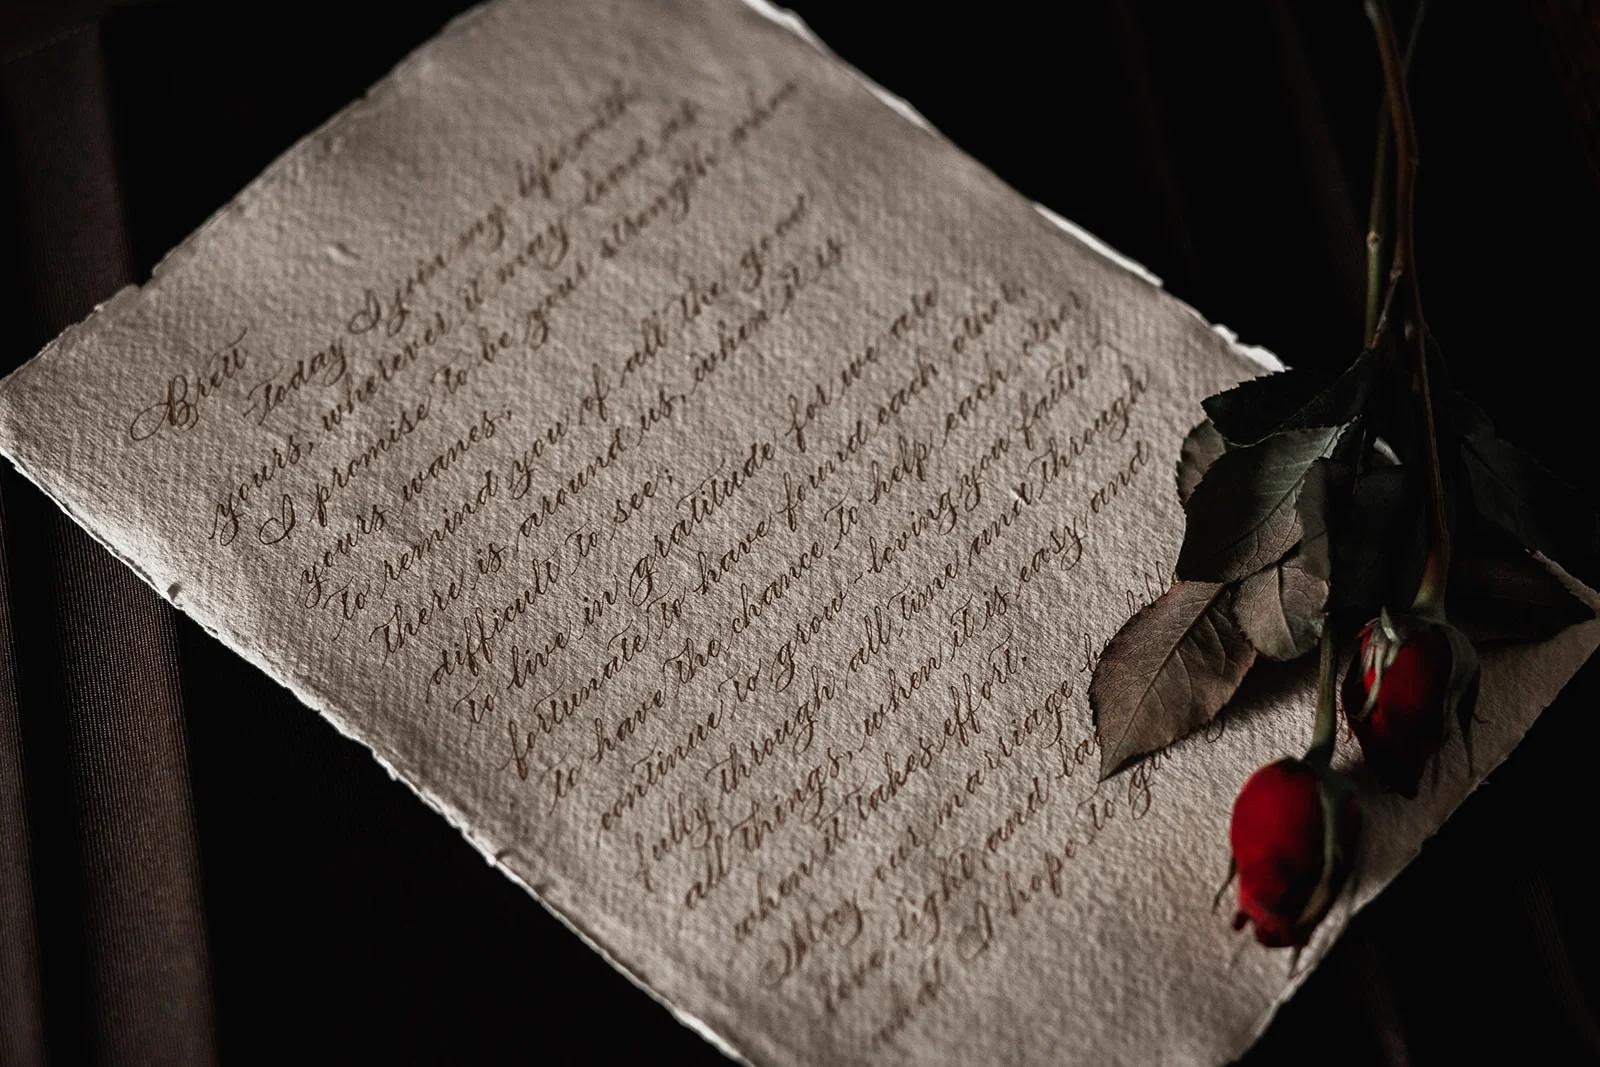 Brett
Today I join my life with
yours, wherever it may lead us
I promise to be your strength when
yours wanes,
to remind you of all the good
there is around us, when it is
difficult to see;
to live in gratitude for we are
fortunate to have found each other,
to have the chance to help each other
continue to grow - loving you faith
fully through all time and through
all things, when it is easy and
when it takes effort.
May our marriage be
love, light and
what I hope to